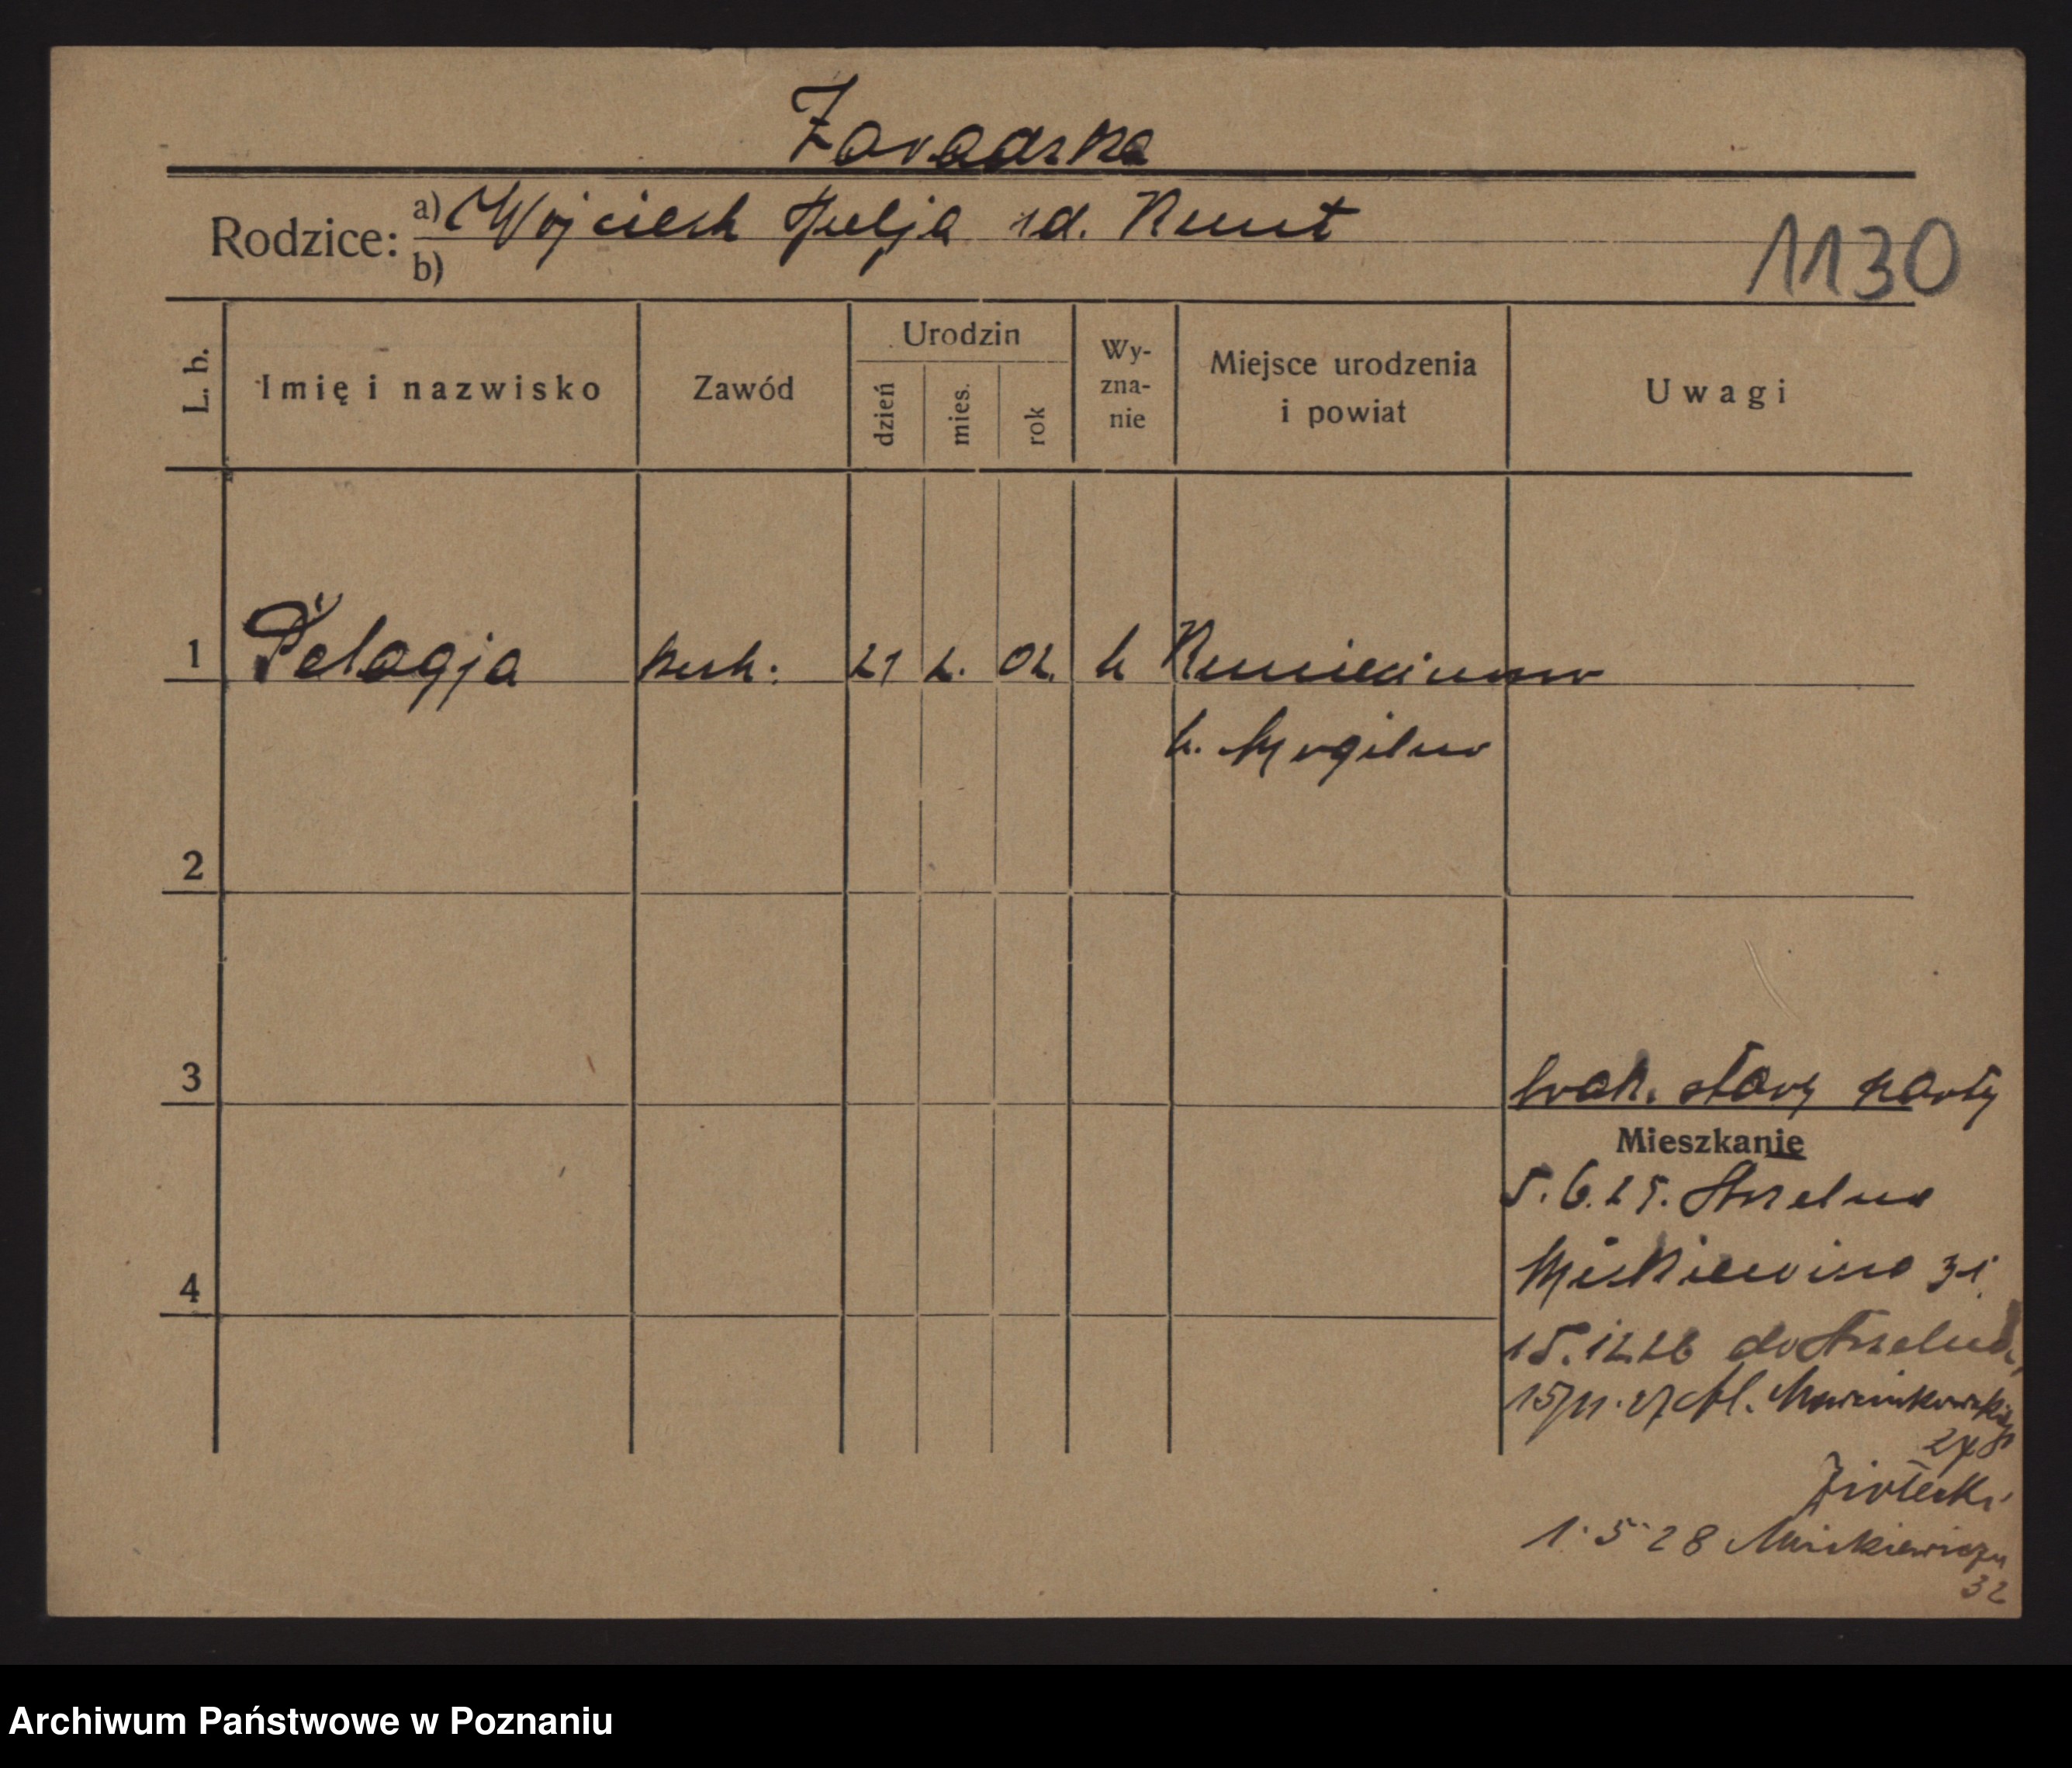 Zawadzka
Rodzice:
a) Wojciech Julja zd. Kunst
b)
1130
L. b.
Imię i nazwisko
Zawód
Urodzin
dzień
mies.
rok
Wy-
zna-
nie
Miejsce urodzenia
i powiat
Uwagi
1 Pelagja 21 2. 02. k
k. Mogilno
2
3
brak. starej karty
Mieszkanie
5.6.25. Strzelno
Mickiewicza 31
4
15.12.26 do Strzelna
15/11.27 Al. Marcinkowskiego
Ziółecki
1.5.28 Mickiewicza
32
Archiwum Państwowe w Poznaniu